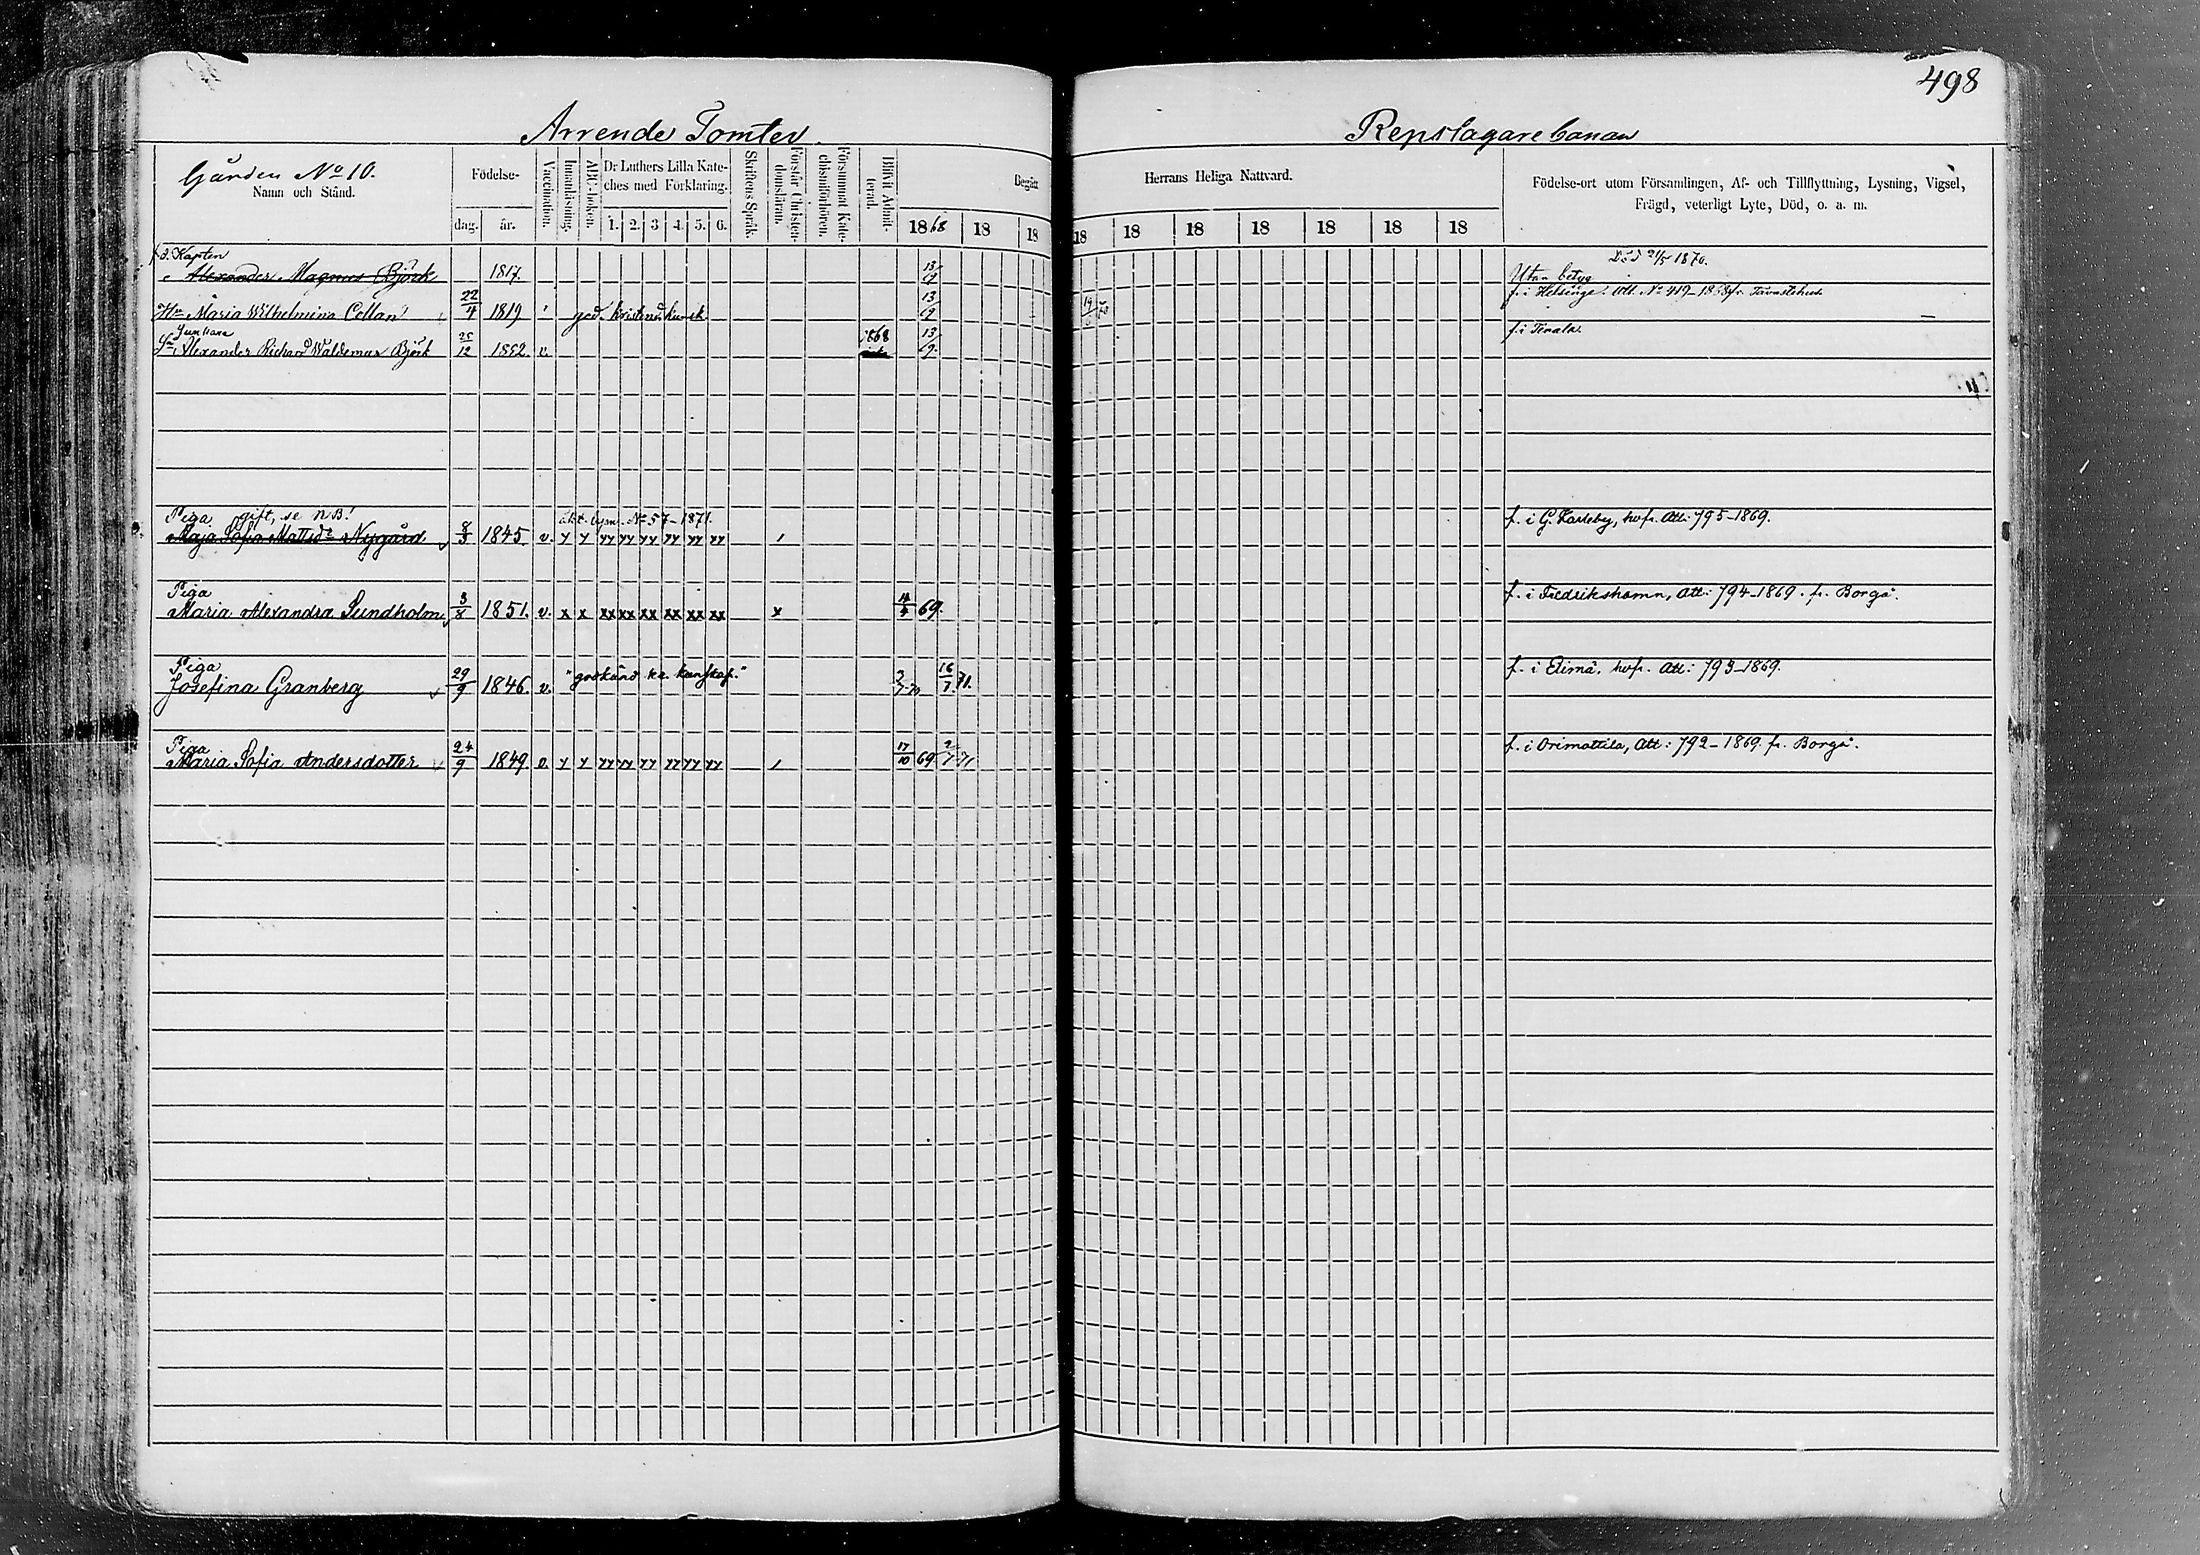 498
Arrende Tomter. Repslagarebanan
Gården No 10.
Namn och Stånd.
Födelse-
dag. år.
Vaccination.
Innanläsning.
ABC-boken.
Dr Luthers Lilla Kate-
ches med Förklaring.
1. 2. 3 4. 5. 6.
Skriftens Språk.
Förstår Christen-
domsläran.
Försummat Kate-
chismiförhören.
Blifvit Admit-
terad.
Begått Herrans Heliga Nattvard.
1868 18 18 18 18 18 18 18 18 18
Födelse-ort utom Församlingen, Af- och Tillflyttning, Lysning, Vigsel,
Frägd, veterligt Lyte, Död, o. a. m.
Kapten Död 21/5 1870.
Alexander Magnus Björk 1817. 13/9 Utan betyg
Hu Maria Wilhelmina Collan 22/4 1819 god kristend. kunsk. 13/9 f. i Helsinge. Att. No 419-1868 fr. Tavastehus.
Junkare
Sn Alexander Richard Waldemar Björk 25/12 1852. v. 1868 13/9. f. i Tenala.
Piga gift, se NB! äkt. lysn. No 57-1871.
Maja Sofia Mattsdr Nygård 8/3 1845. v. y y yy yy yy yy yy yy f. i G. Karleby, hvfr. Att: 795-1869.
Piga
Maria Alexandra Sundholm 3/8 1851. v. x x xx xx xx xx xx xx x 69. f. i Fredrikshamn, Att: 794-1869. fr. Borgå.
Piga
Josefina Granberg 29/9 1846. v. "godkänd kr. kunskap." 16/7 71. f. i Elimä, hvfr. Att: 793-1869.
Piga
Maria Sofia Andersdotter 24/9 1849 v. y y yy yy yy yy yy yy 17/10 69 f. i Orimattila, Att: 792-1869. fr. Borgå.